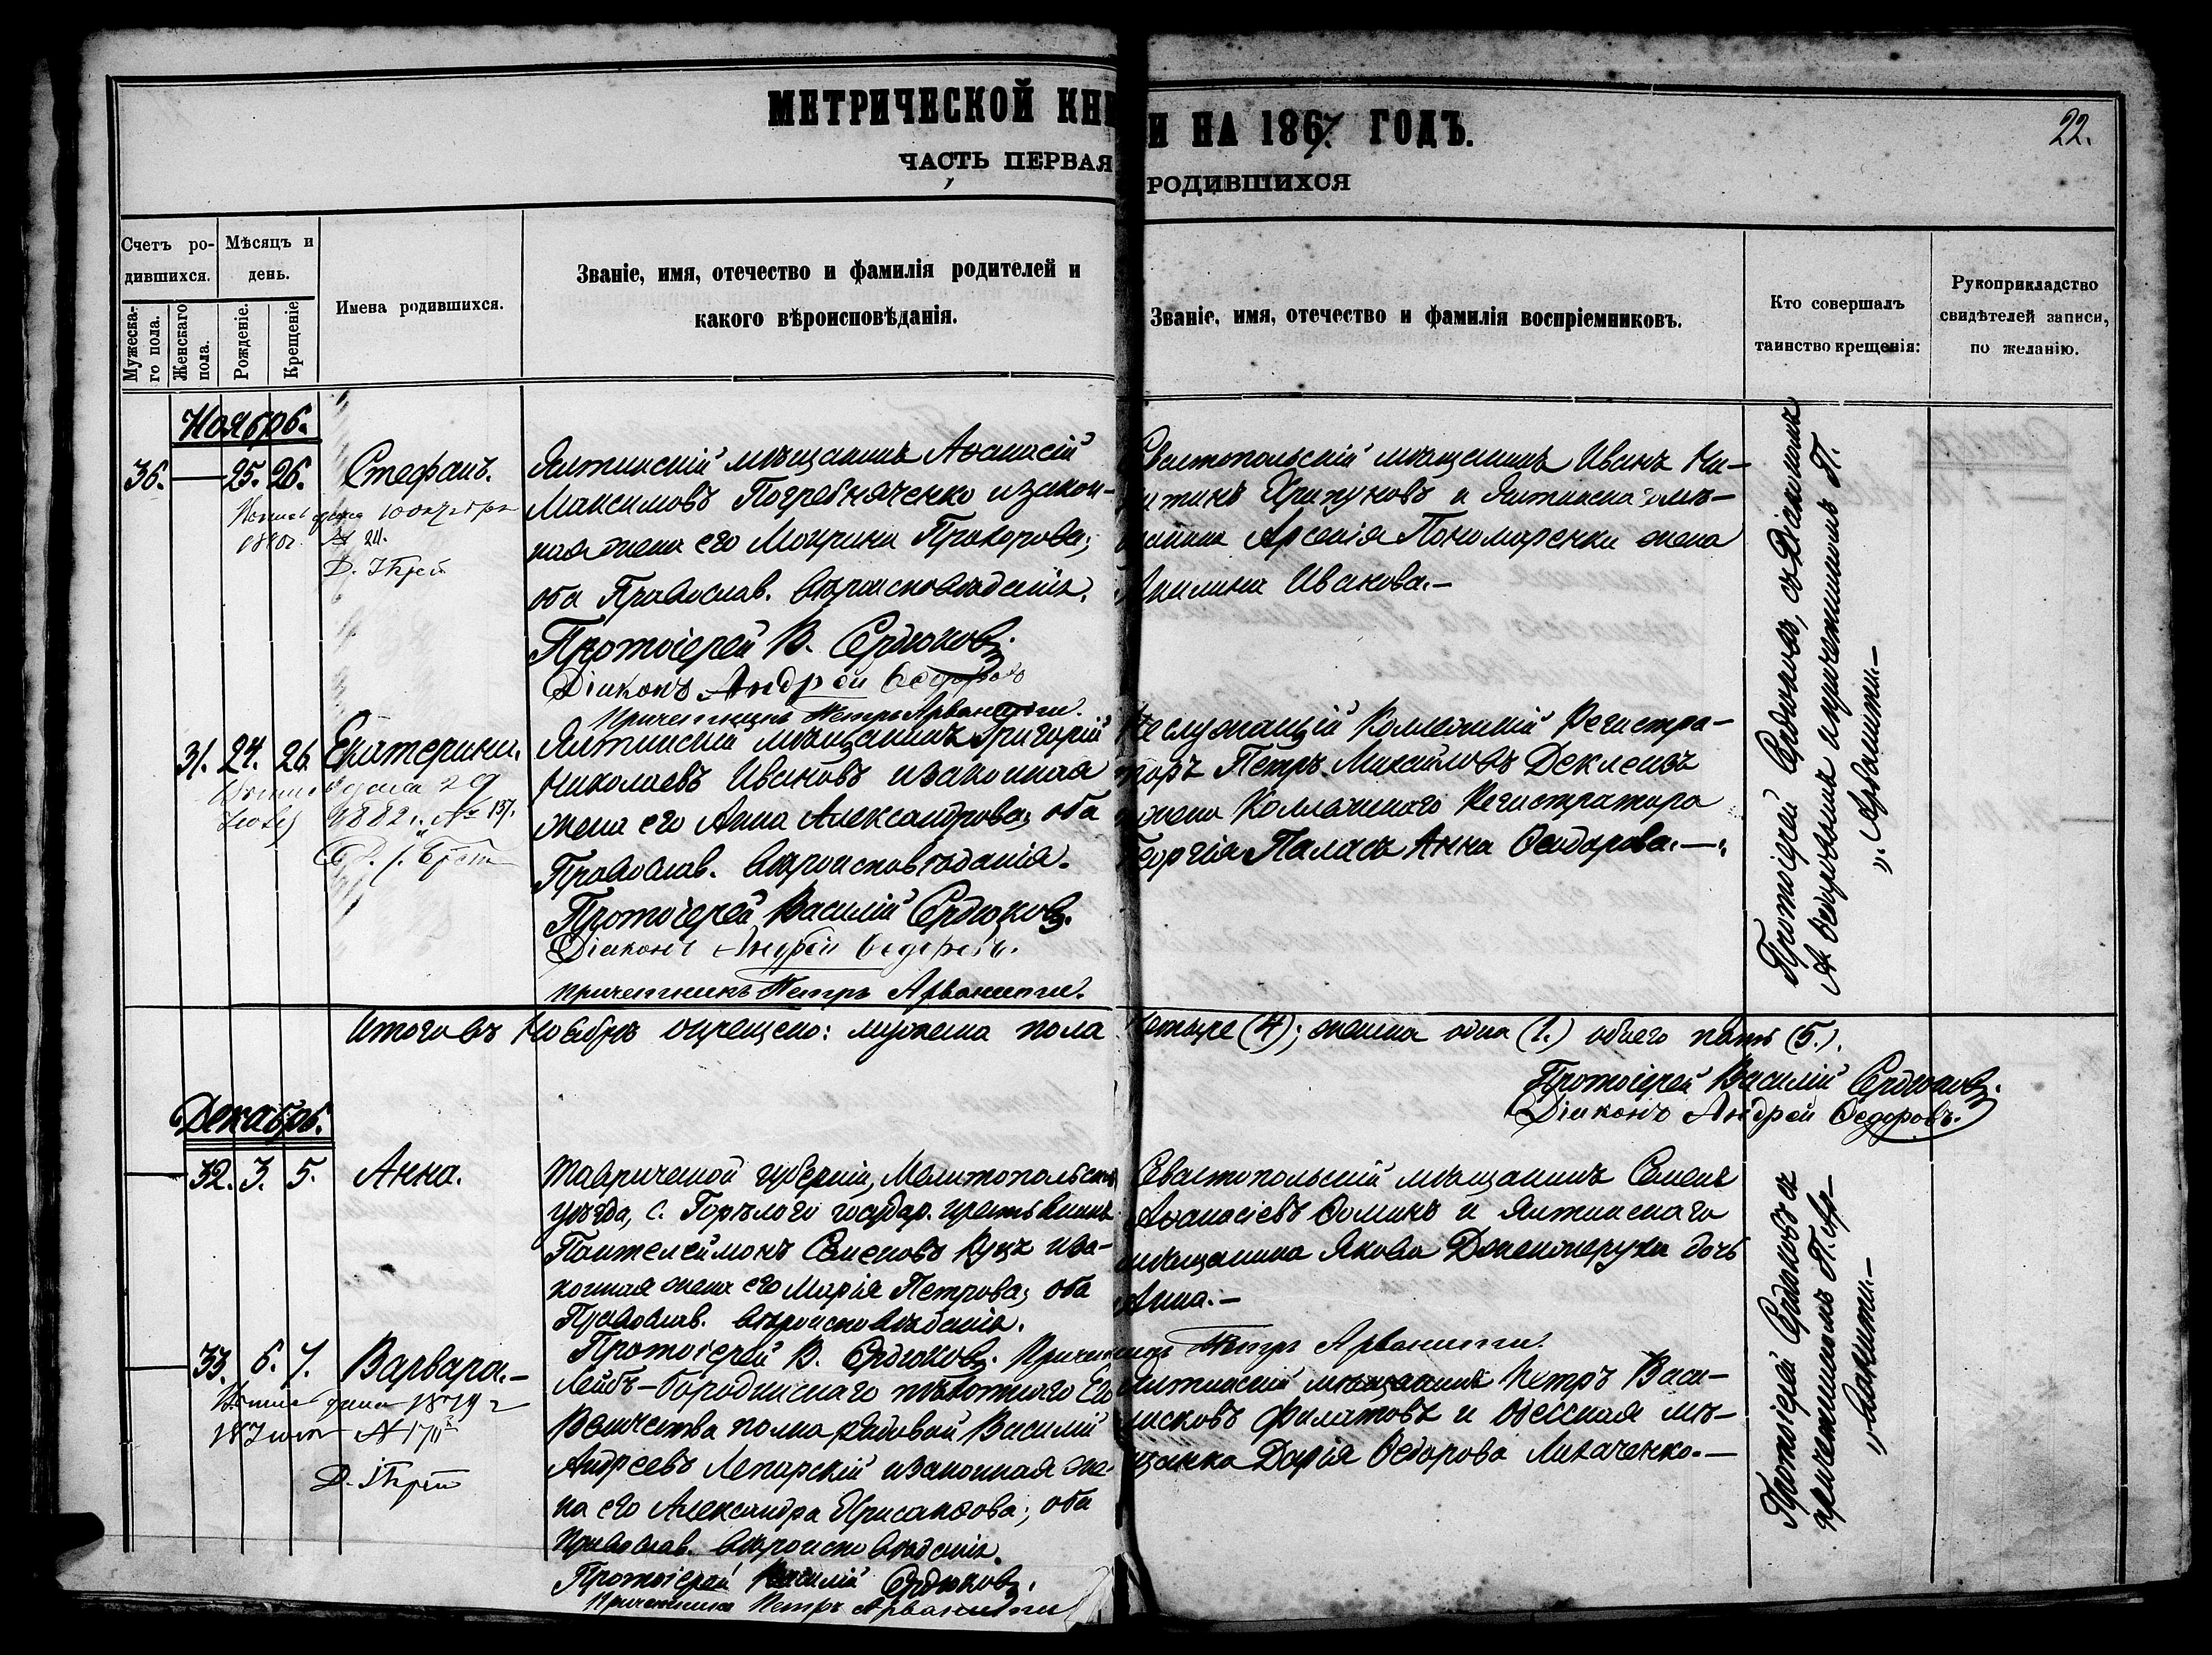 МЕТРИЧЕСКОЙ КНИ
И НА 1867. ГОДЪ.
22.
ЧАСТЬ ПЕРВАЯ
РОДИВШИХСЯ
Счетъ ро-
дившихся.
Мужеска-
го пола.
Женскаго
пола.
Мѣсяцъ и
день.
Рожденіе.
Крещеніе
Имена родившихся.
Званіе, имя, отечество и фамилія родителей и
какого вѣроисповѣданія.
Званіе, имя, отечество и фамилія воспріемниковъ.
Кто совершалъ
таинство крещенія:
Рукоприкладство
свидѣтелей записи,
по желанію.
Ноябрь.
36. — 25. 26. Стефанъ.
1880г.
№ 211.
Ялтинскій мѣщанинъ Аѳанасій
Максимовъ Погребняченко и закон-
ная жена его Маврина Прохорова;
оба Православ. вѣроисповѣданія.
Протоіерей В. Сердюковъ.
Діаконъ Андрей Ѳедоровъ
Причетникъ Петръ Арванити.
Севастопольскій мѣщанинъ Иванъ Ни-
китинъ Хрипуновъ и Ялтинскаго мѣ-
щанина Арсенія Пономаренки жена
Акилина Иванова.—
31. 24. 26. Екатерина.
1882г. № 137.
Ялтинскій мѣщанинъ Григорій
Николаевъ Ивановъ и законная
жена его Анна Александрова; оба
Православ. вѣроисповѣданія.
Протоіерей Василій Сердюковъ.
Діаконъ Андрей Ѳедоровъ.
Причетникъ Петръ Арванити.
Неслужащій Коллежскій Регистра-
торъ Петръ Михайловъ
жена Коллежскаго Регистратора
Георгія Паласъ Анна Ѳеодорова.—
Протоіерей Сердюковъ, съ Діакономъ
А. Ѳедоровымъ и причетникомъ П.
„Арванити.—
Итого въ Ноябрѣ окрещено: мужеска пола четыре (4); женска одна (1.) обоего пять (5.).
Протоіерей Василій Сердюковъ.
Діаконъ Андрей Ѳедоровъ.
Декабрь.
— 32. 3. 5. Анна.
Таврической губерніи, Мелитопольскаго
уѣзда, с. Горѣлого государ. крестьянинъ
Пантелеймонъ Семеновъ Куцъ и за-
конная жена его Марія Петрова; оба
Православ. вѣроисповѣданія.
Протоіерей В. Сердюковъ. Причетникъ Петръ Арванити.
Севастопольскій мѣщанинъ Семенъ
Аѳанасіевъ Ѳоминъ и Ялтинскаго
мѣщанина Якова дочь
Анна.—
— 33. 6. 7. Варвара.—
1879 г
18 Іюля № 170
Лейбъ-Бородинскаго пѣхотнаго Его
Величества полка рядовой Василій
Андреевъ Лепарскій и законная же-
на его Александра Хрисанфова; оба
Православ. вѣроисповѣданія.
Протоіерей Василій Сердюковъ.
Причетникъ Петръ Арванити
Ялтинскій мѣщанинъ Петръ Васи-
Филатовъ и Одесская мѣ-
щанка Дарія Ѳедорова Лихаченко.—
Протоіерей Сердюковъ съ
причетникомъ П. Ар-
„ванити.—